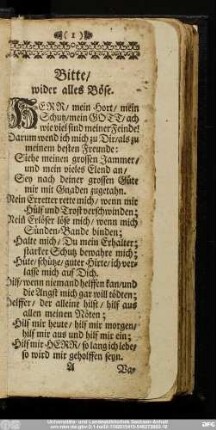 ( 1 )
Bitte/
wider alles Böse.
HERR/ mein Hort/ mein
Schutz/mein GOTT/ ach
wie viel sind meiner Feinde!
Darum wend ich mich zu Dir/als zu
meinem besten Freunde:
Siehe meinen grossen Jammer/
und mein vieles Elend an/
Sey nach deiner grossen Güte
mir mit Gnaden zugethan.
Mein Erretter rette mich/ wenn mir
Hülf und Trost verschwinden;
Mein Erlöser löse mich/ wenn mich
Sünden-Bande binden;
Halte mich/ Du mein Erhalter;
starker Schutz bewahre mich;
Hüte/schütze/ guter Hirte/ich ver-
lasse mich auf Dich.
Hilf/ wenn niemand helffen kan/und
die Angst mich gar will tödten;
Helffer/ der alleine hilft/ hilf aus
allen meinen Nöten;
Hilf mir heute/ hilf mir morgen/
hilf mir aus und hilf mir ein;
Hilf mir HERR/ so lang ich lebe/
so wird mir geholffen seyn.
A